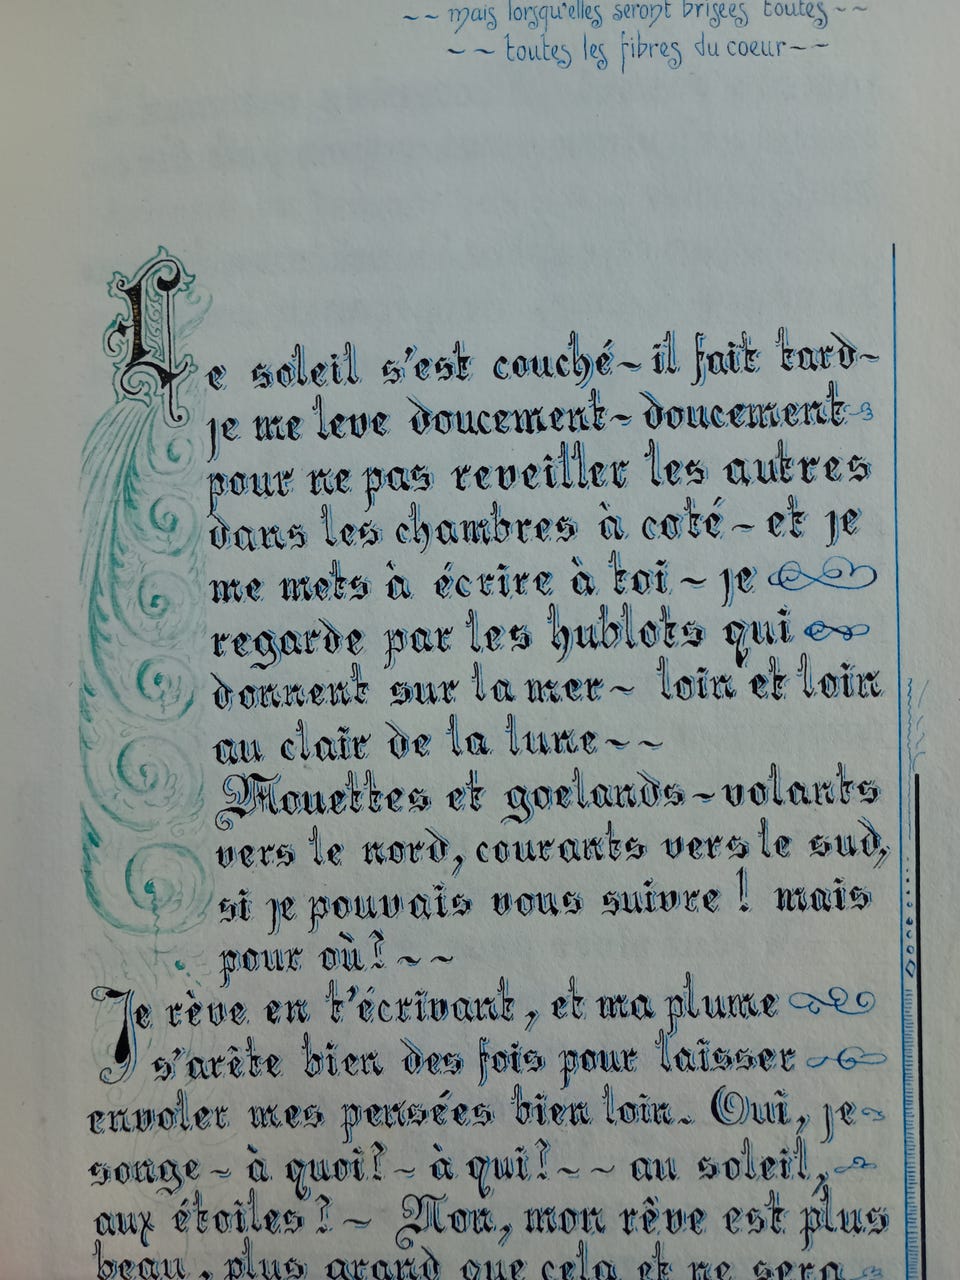 ~~ mais lorsqu'elles seront brisées toutes ~~
~~ toutes les fibres du coeur ~~
Le soleil s'est couché ~ il fait tard ~
je me leve doucement ~ doucement
pour ne pas reveiller les autres
dans les chambres à coté ~ et je
me mets à écrire à toi ~ je
regarde par les hublots qui
donnent sur la mer ~ loin et loin
au clair de la lune ~~
Mouettes et goelands ~ volants
vers le nord, courants vers le sud,
si je pouvais vous suivre ! mais
pour où? ~~
Je rève en t'écrivant, et ma plume
s'arête bien des fois pour laisser
envoler mes pensées bien loin. Oui, je
songe ~ à quoi? ~ à qui? ~~ au soleil,
aux étoiles? ~ Non, mon rêve est plus
beau, plus grand que cela et ne sera